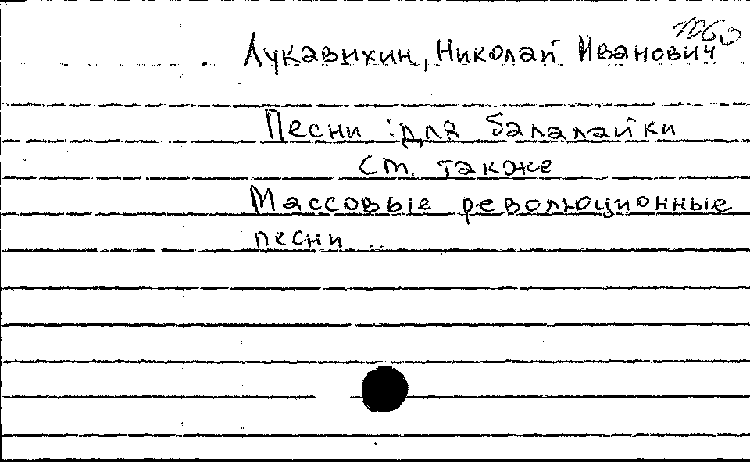 1060
Лукавихин, Николай Иванович
Песни для балалайки
см. также
Массовые революционные
песни ..